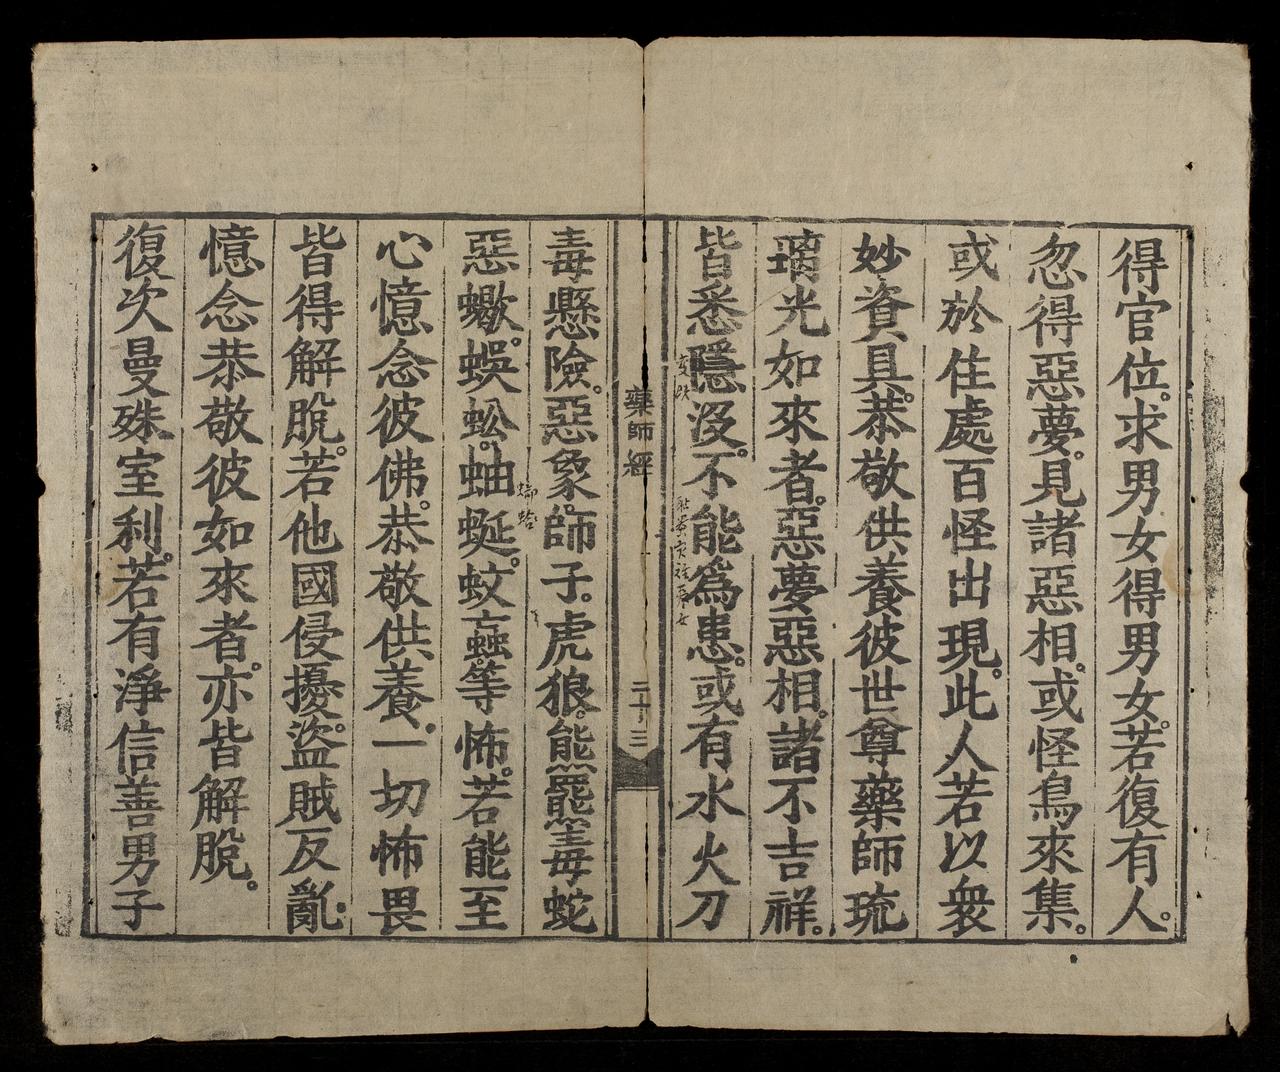 得官位。求男女得男女。若復有人。
忽得惡夢。見諸惡相。或怪鳥來集。
或於住處百怪出現。此人若以衆
妙資具。恭敬供養彼世尊藥師琉
璃光如來者。惡夢惡相。諸不吉祥。
皆悉隱沒。不能爲患。或有水火刀
藥師經
二十三
毒懸險。惡象。師子。虎狼。熊羆毒蛇
惡蠍。蜈蚣。蚰蜒。蚊蝱等怖。若能至
心憶念彼佛。恭敬供養。一切怖畏
皆得解脫。若他國侵擾。盜賊反亂。
憶念恭敬彼如來者。亦皆解脫。
復次曼殊室利。若有淨信善男子